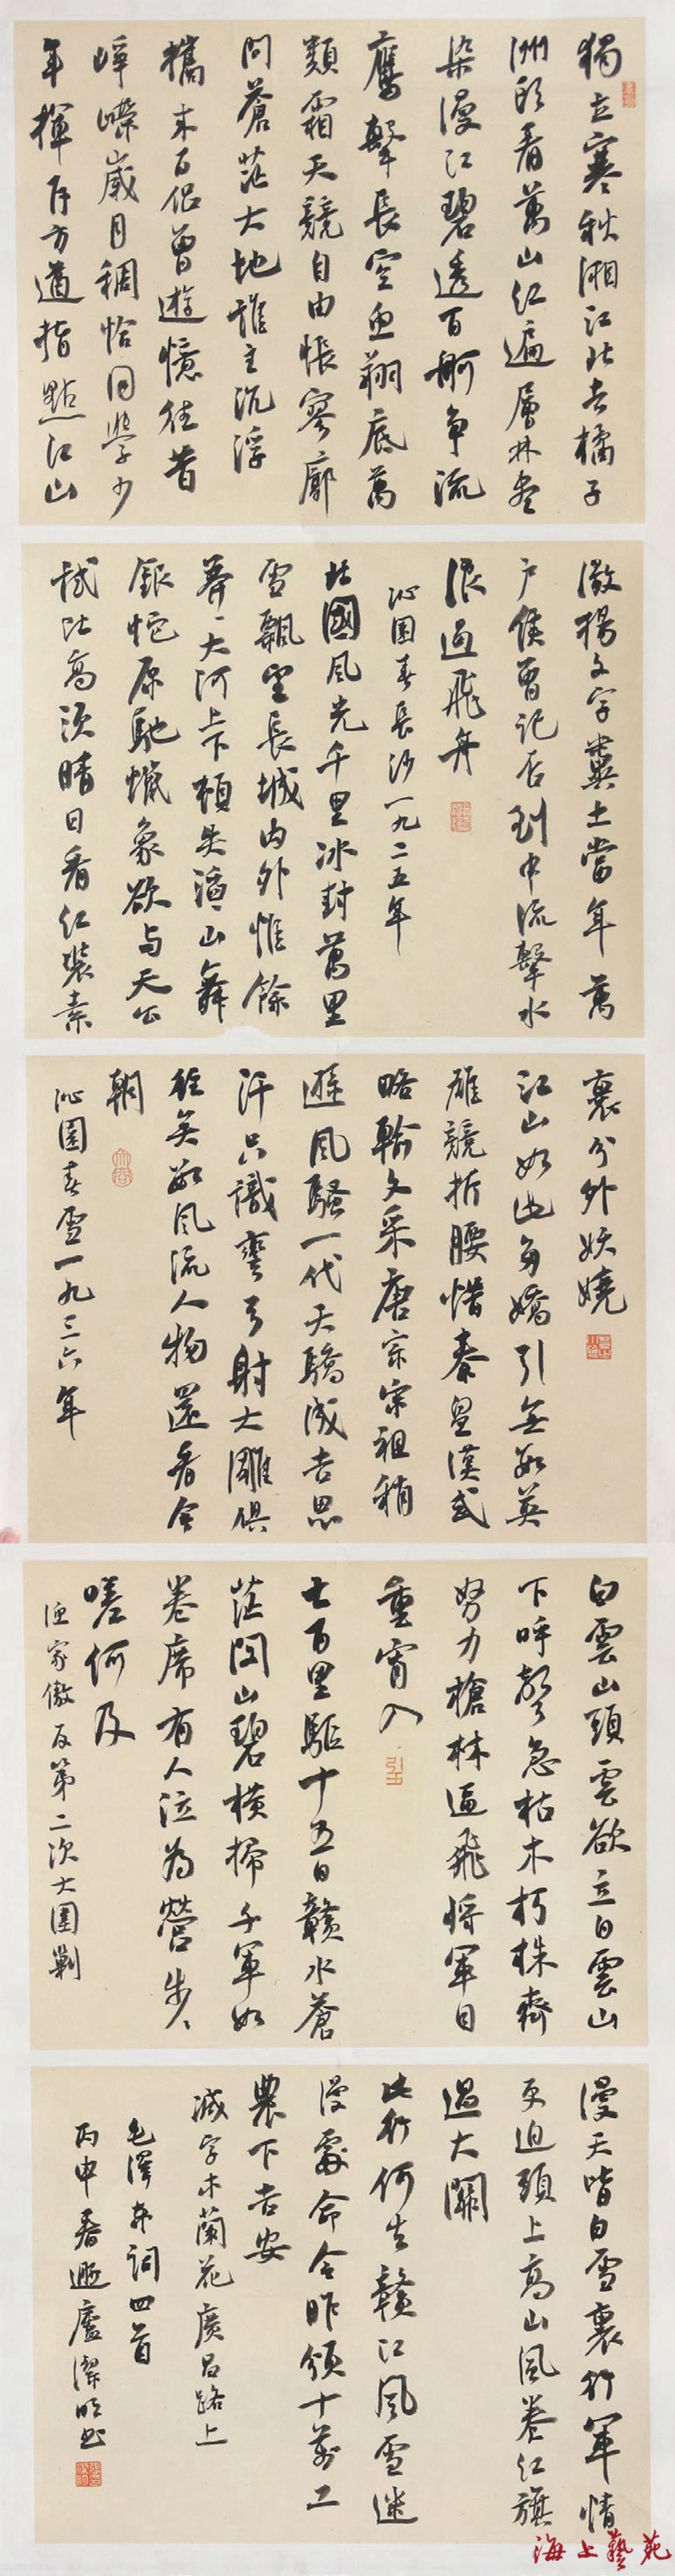 獨立寒秋湘江北去橘子
洲頭看萬山紅遍層林盡
染漫江碧透百舸争流
鷹擊長空魚翔底萬
類霜天競自由悵寥廓
問蒼茫大地誰主沉浮
攜來百侶曾遊憶往昔
崢嶸歲月稠恰同學少
年揮斥方遒指點江山
激揚文字糞土當年萬
户侯曾記否到中流擊水
浪遏飛舟
沁園春長沙一九二五年
北國風光千里冰封萬里
雪飄望長城内外惟餘
莽〻大河上下頓失滔〻山舞
銀蛇原馳蠟象欲与天公
試比高須晴日看红裝素
裹分外妖嬈
江山如此多嬌引無數英
雄競折腰惜秦皇漢武
略輸文采唐宗宋祖稍
遜風騷一代天驕成吉思
汗只識彎弓射大雕俱
往矣數風流人物還看今
朝
沁園春雪一九三六年
白雲山頭雲欲立白雲山
下呼聲急枯木朽株齊
努力槍林逼飛將軍自
重霄入
七百里驅十五日贛水蒼
茫閩山碧橫掃千軍如
卷席有人泣為營步〻
嗟何及
漁家傲反第二次大圍剿
漫天皆白雪裏行軍情
更迫頭上高山風卷红旗
過大關
此行何去贛江風雪迷
漫處命令昨頒十萬工
農下吉安
減字木蘭花廣昌路上
毛澤東詞四首
丙申春遯廬潔明书
海上藝苑